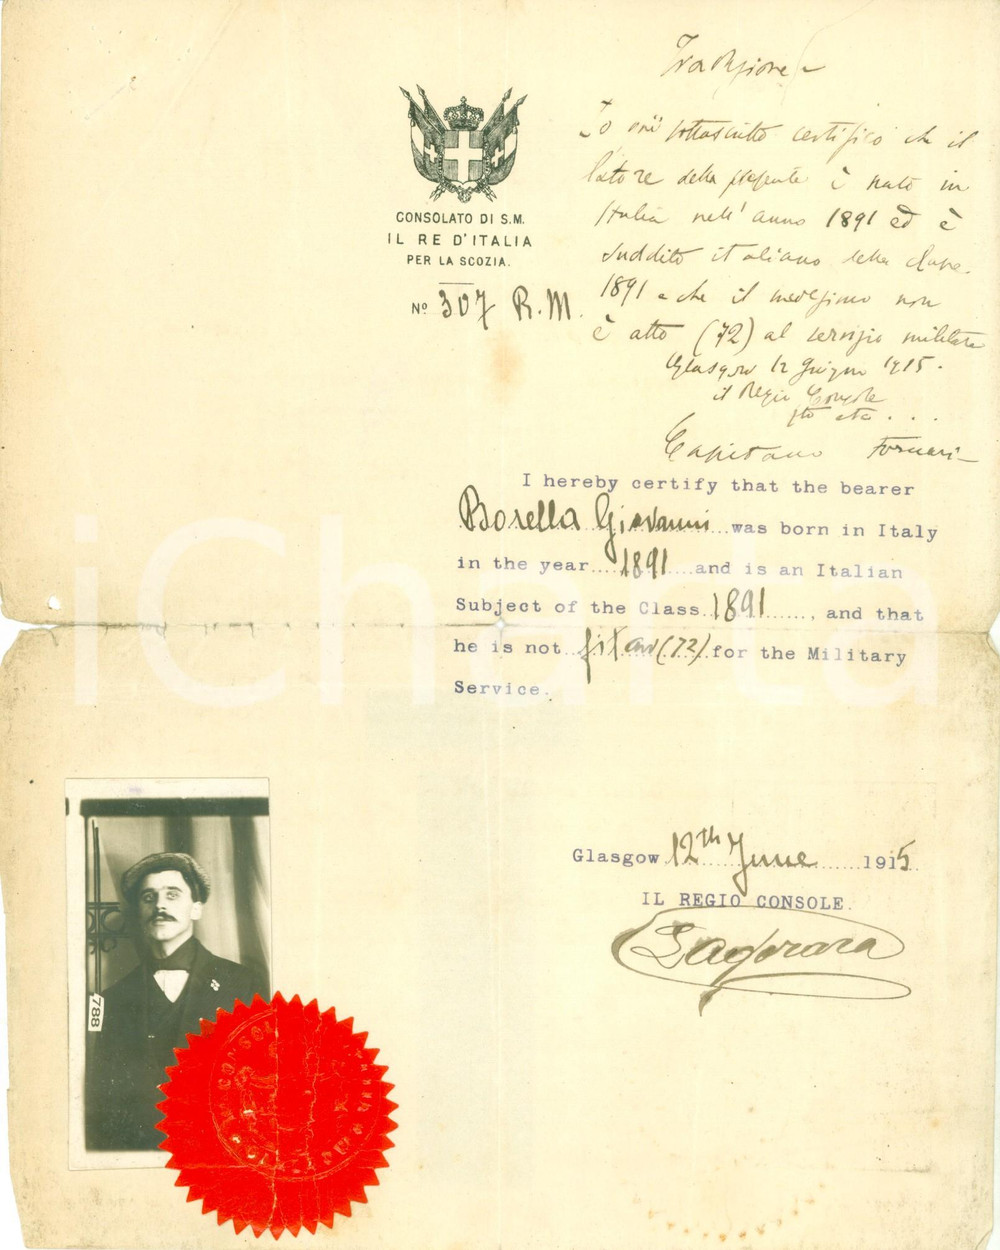 Traduzione
Io quì sottoscritto certifico che il
latore della presente è nato in
Italia nell'anno 1891 ed è
suddito italiano della classe
1891 e che il medesimo non
è atto (72) al servizio militare
Glasgow 12 Giugno 1915.
il Regio Console
Capitano Fornari
CONSOLATO DI S.M.
IL RE D'ITALIA
PER LA SCOZIA.
Nº 307 R.M.
I hereby certify that the bearer
Borella Giovanni was born in Italy
in the year 1891 and is an Italian
Subject of the Class 1891, and that
he is not fit (72) for the Military
Service.
Glasgow 12th June 1915.
IL REGIO CONSOLE.
788
iCharta